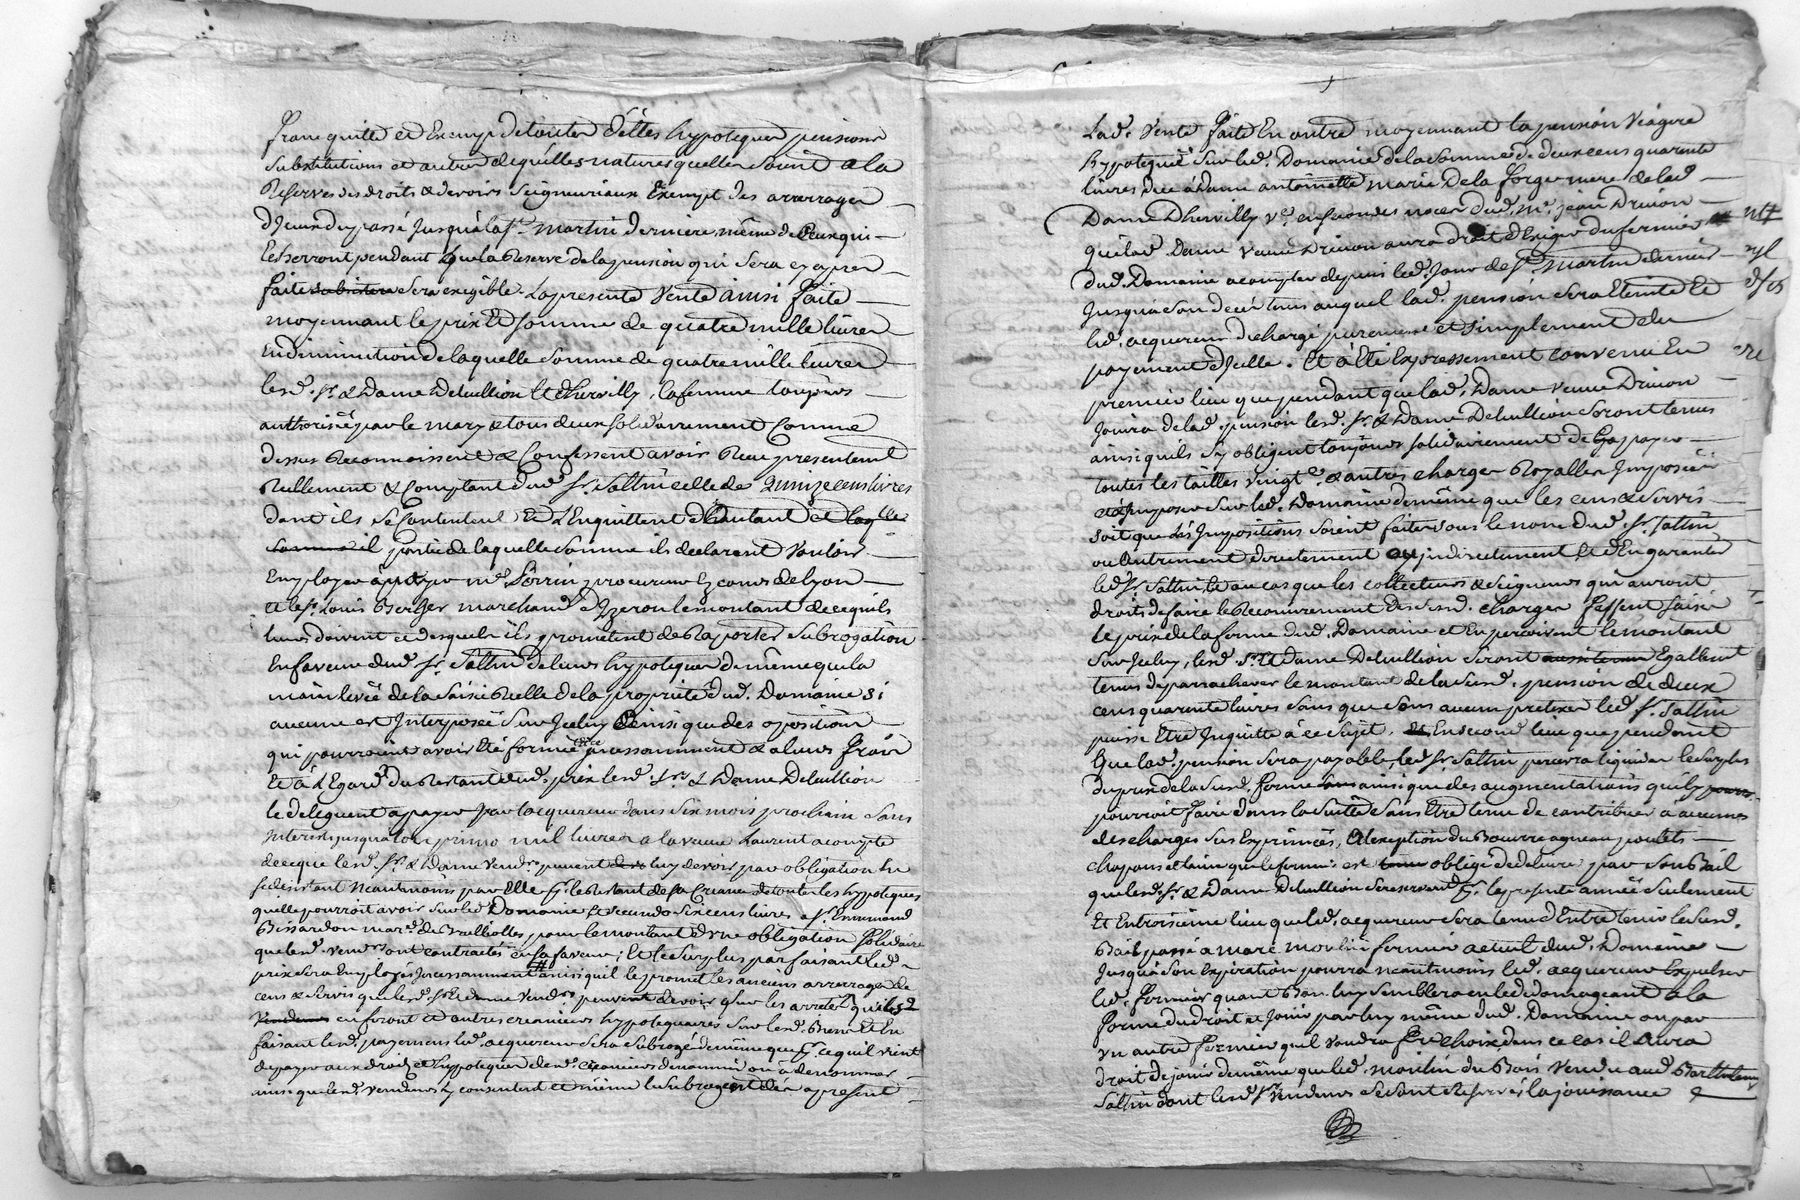 franc quitte et Exempt de toutes dettes hypoteques pensions
substitutions et autres de quelles natures quelles soient a la
Reserve des droits & devoirs seigneuriaux Exempt des arrerages
d'Iceux du passé jusqu'à la st. martin derniere, même de Ceux qui
Echerront pendant que la Reserve de la pension qui sera cy apres
faite sera exigible. La presente Vente ainsi faite
moyennant le prix Et somme de quatre mille livres
En diminution de laquelle somme de quatre mille livres
lesd. sr. & Dame Deluillion Et Dhervilly, la femme toujours
authorisée par le mary & tous deux solidairement Comme
dessus Reconnoissent & Confessent avoir Reçu presentemt
Rellement & Comptant dud. sr. Sattin celle de quinze cens livres
dont ils se Contentent Et L'Enquittent d'autant et laqlle
somme il partie de laquelle somme ils declarent Vouloir
Employer à payer me. procureur Ez cours de Lyon
et le sr. Louis Berger marchand a Izeron le montant de ce qu'ils
leurs doivent et desquels ils promettent de Raporter subrogation
En faveur dud. sr. Sattin de leurs hypoteques de même que la
main levée de la saisie Reelle de la propriété dud. Domaine si
aucune est Interposée sur Iceluy Ainsi que des opositions
qui pourroient avoir Eté formée & ce incessamment & a leurs frais
Et à L'Egard du Restant dud. prix lesd. srs. & Dame Deluillion
le deleguent a payer par lacquereur dans six mois prochain sans
Interets jusqu'alors primo mil livres a la veuve Laurent acompte
de ce que lesd. sr. & Dame Vendrs. peuvent luy devoir par obligation
neantmoins par Elle le Restant de sa Creance de toutes les hypoteques
quelle pourroit avoir sur led. Domaine Et secundo six cens livres a sr.
Bissardon mard. de pour le montant d'une obligation solidaire
que lesd. Vendrs. ont contractés en sa faveur; Et le surplus parfaisant led.
prix sera Employés Incessamment ainsi quil le promet les anciens arrerages de
cens & servis que lesd. sr. Et dame Vendrs. peuvent devoir sur les arretés qu'ilsd.
Vendeurs en feront et autres creanciers hypotequaires sur lesd. Biens Et En
faisant lesd. payemens led. acquereur sera subrogé de même que ce quil vient
de payer aux droits et hypoteques desd. creanciers denommés ou a denommer
ainsi que lesd. Vendeurs y consentent et même le subrogent des a present
Lad. Vente faite En outre moyennant la pension Viagere
hypotequée sur led. Domaine de la somme de deux cens quarente
livres due à Dame antoinette marie De la forge mere de lad.
Dame Dhervilly Ve. en secondes noces dud. me. jean Drivon
que lad. Dame Veuve Drivon aura droit d'Exiger du fermier
dud. Domaine a compter depuis led. jour de st. martin dernier
jusqu'à son decès tems auquel lad. pension sera Eteinte Et
led. acquereur dechargé purement et simplement du
payement d'Icelle. Et à Eté Expressement convenu En
premier lieu que pendant que lad. Dame Veuve Drivon
jouira de lad. pension lesd. sr. & Dame Deluillion seront tenus
ainsi quils s'y obligent toujours solidairement de payer
toutes les tailles vingte. & autres charges Royalles Imposées
et à Imposer sur led. Domaine de même que les cens & servis
soit que les Impositions soient faites sous le nom dud. sr. Sattin
ou Autrement directement ou jndirectement Et d'En garantir
led. sr. Sattin, Et au cas que les collecteurs & seigneurs qui auront
droits de faire le Recouvrement desd. charges fassent saisir
le prix de la ferme dud. Domaine et En percoivent le montant
sur Iceluy, lesd. sr. Et Dame Deluillion seront Egallemt
tenus de parrachever le montant de la susd. pension de deux
cens quarente livres sans que sous aucun pretexte led. sr. Sattin
puisse Etre Inquietté à ce sujet, Et En second lieu que pendant
que lad. pension sera payable, led. sr. Sattin percevra le surplus
du prix de la susd. ferme ainsi que des augmentations quil y
pourroit faire dans la suite sans Etre tenu de contribuer à aucunes
des charges sus Exprimées, A l'exception du Beurre agneau poulets
chapons et laine que le fermier est obligé de delivrer par son Bail
que lesd. sr. & Dame Deluillion se reservent la presente année seulement
Et En troisieme lieu que led. acquereur sera tenu d'Entretenir le susd.
Bail passé a marc moulin fermier actuel dud. Domaine
jusqu'à son Expiration pourra neantmoins led. acquereur Expulser
led. fermier quant Bon luy semblera en le dedomageant à la
forme du droit et jouir par luy même dud. Domaine ou par
un autre fermier quil voudra faire choix dans ce cas il Aura
droit de jouir de même que led. moulin du Bois Vendu aud. Barthelemy
Sattin dont lesd. srs. Vendeurs se sont Reservés la jouissance